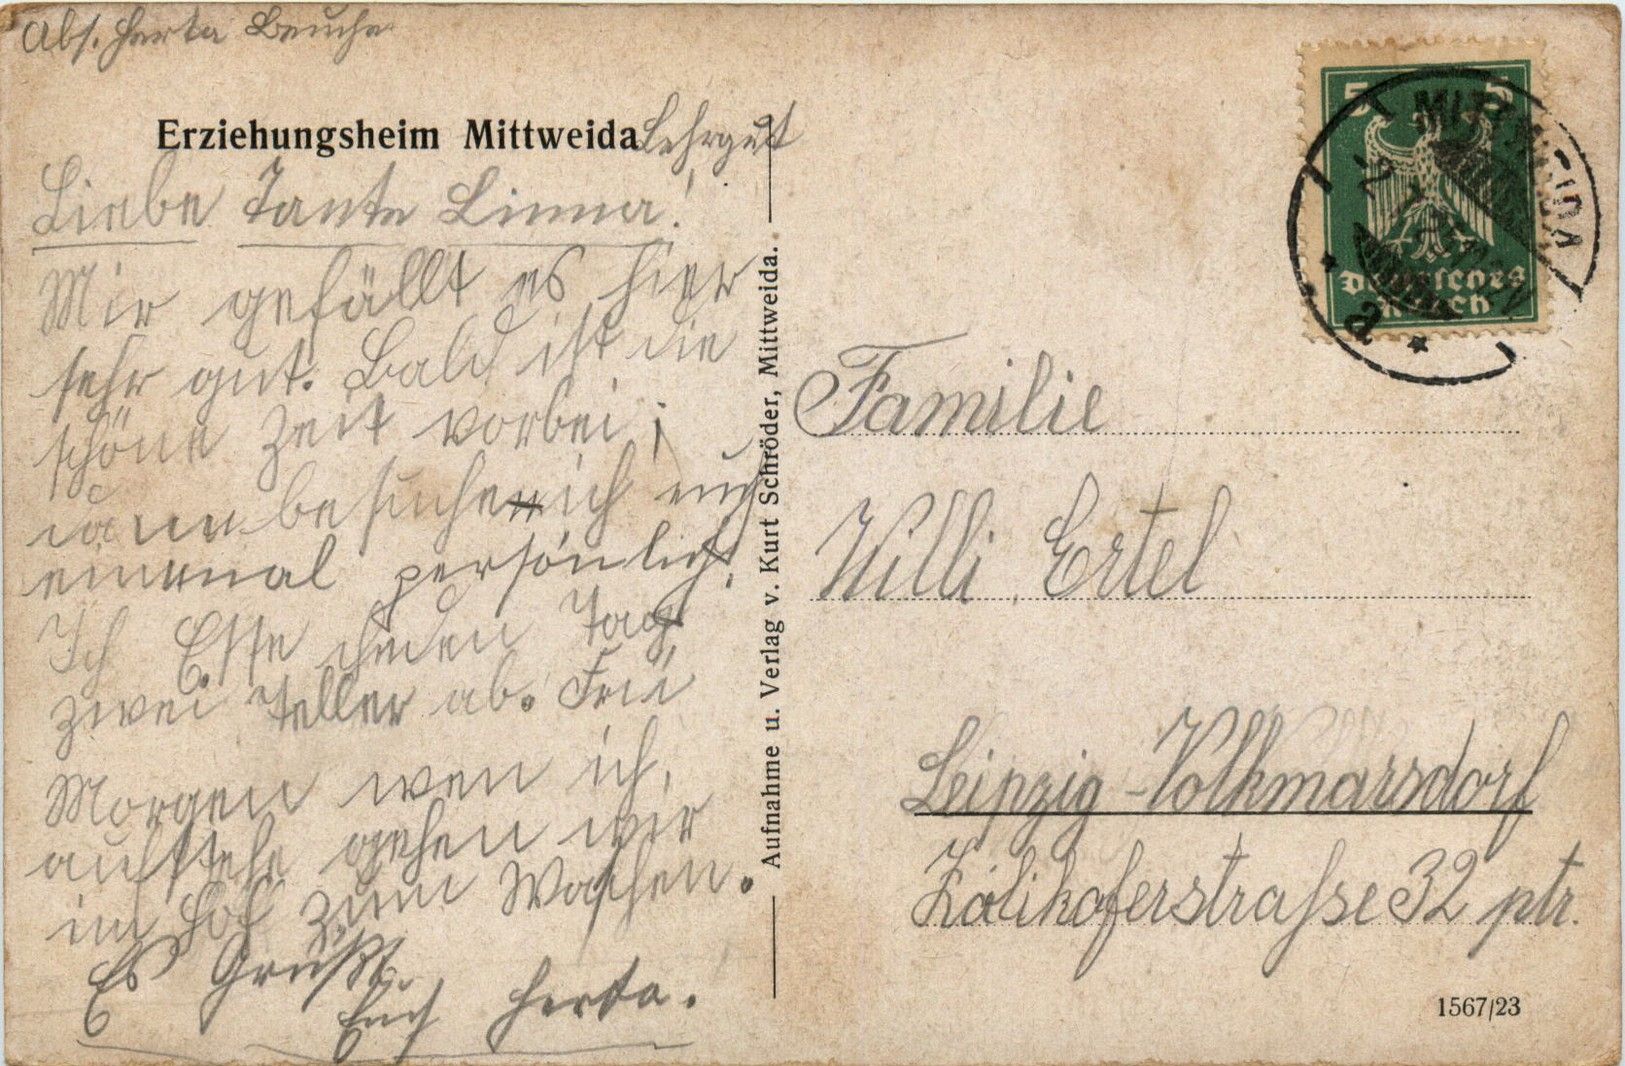 Abs. Herta Beuche
Erziehungsheim Mittweida Lehrgut
Liebe Tante Linna!
Mir gefällt es hier
sehr gut. Bald ist die
schöne Zeit vorbei;
dann besuche ich euch
einmal persönlich.
Ich Esse jeden Tag
zwei Teller ab. Frü
Morgen wen ich,
aufstehe gehen wir
im Hof zum Waschen.
Es Grüßt.
Euch Herta.
Aufnahme u. Verlag v. Kurt Schröder, Mittweida.
5 5
Deutsches
Reich
MITTWEIDA
a
Familie
Willi Ertel
Leipzig-Volkmarsdorf
Zolikoferstrasse 32 ptr.
1567/23